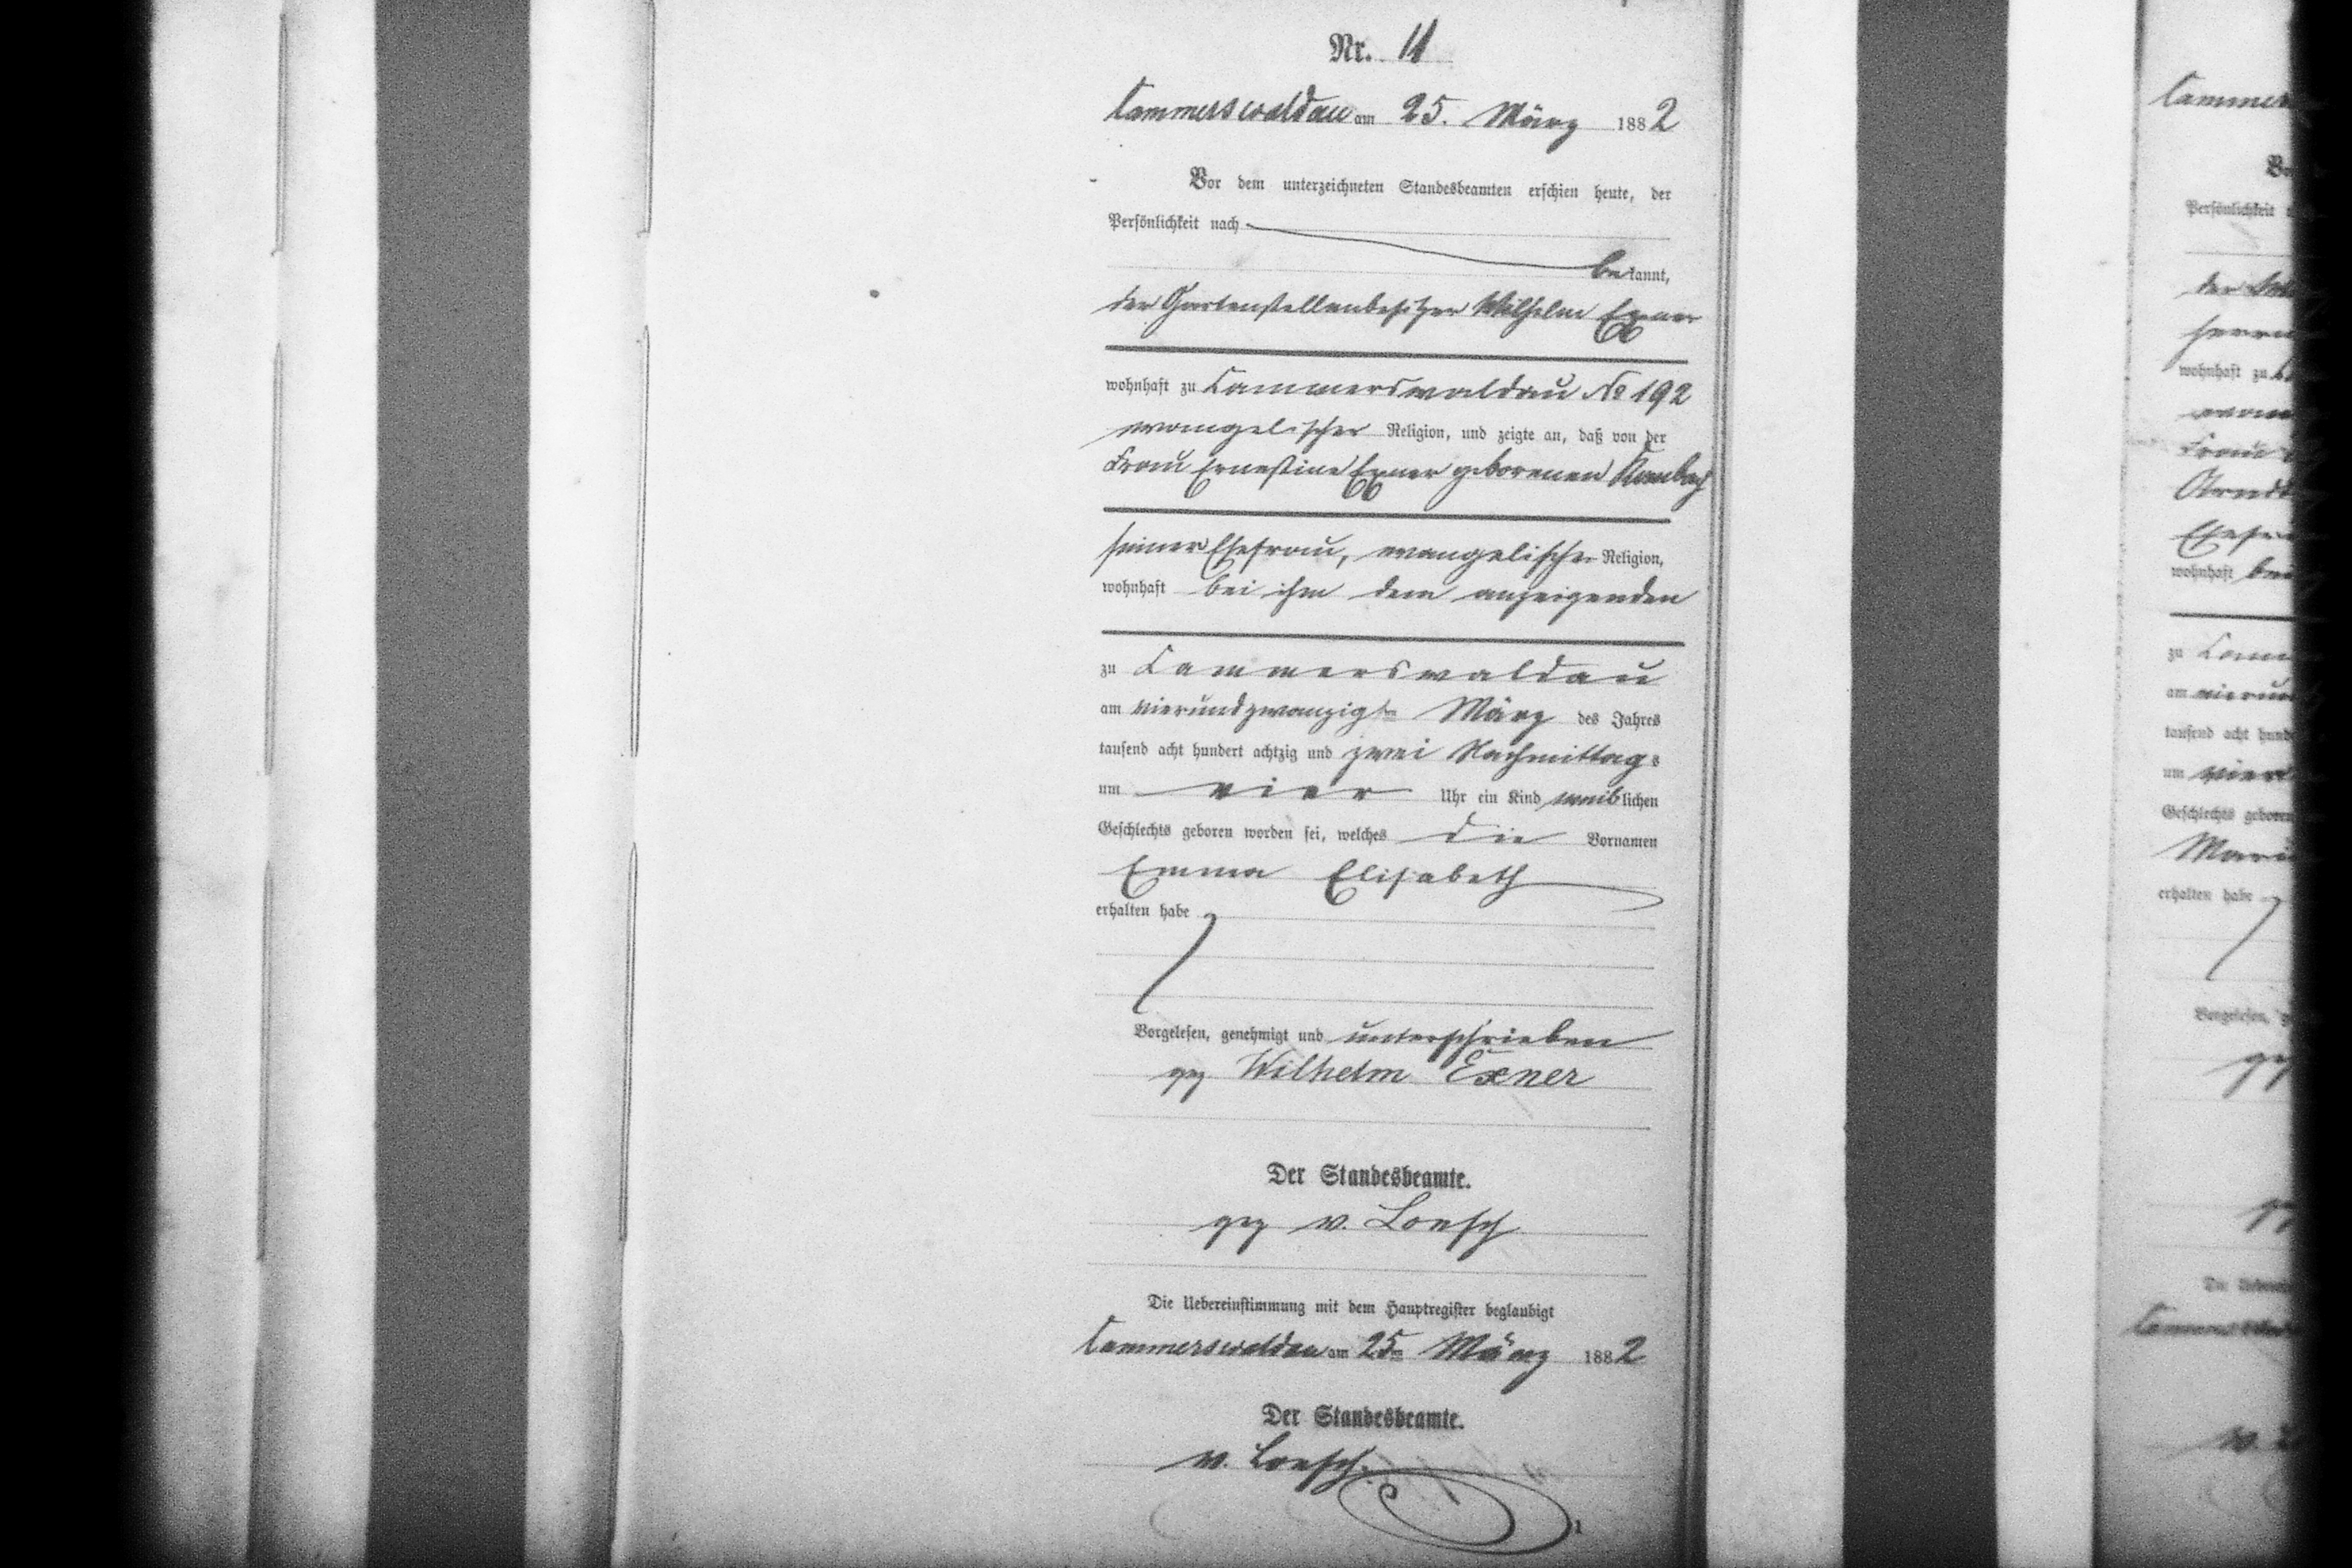 Nr. 11
Cammerswaldau am 25. März 1882
Vor dem unterzeichneten Standesbeamten erschien heute, der
Persönlichkeit nach
bekannt,
der Gartenstellenbesitzer Wilhelm Exner
wohnhaft zu Cammerswaldau No 192
evangelischer Religion, und zeigte an, daß von der
Frau Ernestine Exner geborenen
seiner Ehefrau, evangelischer Religion,
wohnhaft bei ihm dem anzeigenden
zu Cammerswaldau
am vierundzwanzigsten März des Jahres
tausend acht hundert achtzig und zwei Nachmittags
um vier Uhr ein Kind weiblichen
Geschlechts geboren worden sei, welches die Vornamen
Emma Elisabeth
erhalten habe
Vorgelesen, genehmigt und unterschrieben
gez Wilhelm Exner
Der Standesbeamte.
gez v. Loesch
Die Uebereinstimmung mit dem Hauptregister beglaubigt
Cammerswaldau am 25ten März 1882
Der Standesbeamte.
v. Loesch.
1
wohnhaft zu
wohnhaft
zu
am
um
erhalten habe